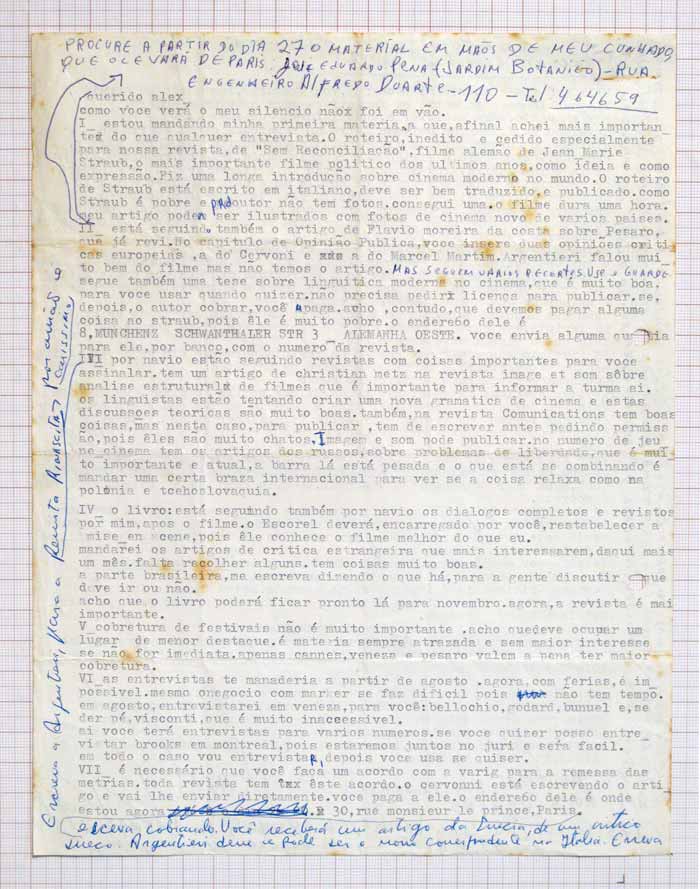 PROCURE A PARTIR DO DIA 27 O MATERIAL EM MÃOS DE MEU CUNHADO,
QUE O LEVARÁ DE PARIS: José EDUARDO PENA (JARDIM BOTANICO) - RUA
ENGENHEIRO ALFREDO DUARTE - 110 - Tel 464659
querido alex
como voce verá o meu silencio nãox foi em vão.
I_ estou mandando minha primeira materia,a que,afinal achei mais importan_
tex do que qualquer entrevista.O roteiro,inedito e cedido especialmente
para nossa revista,de "Sem Reconciliação",filme alemão de Jean Marie
Straub,o mais importante filme politico dos ultimos anos,como ideia e como
expressão.Fiz uma longa introdução sobre cinema moderno no mundo.O roteiro
de Straub está escrito em italiano,deve ser bem traduzido,e publicado.como
Straub é pobre e produtor não tem fotos.consegui uma.o filme dura uma hora.
seu artigo poderá ser ilustrados com fotos de cinema novo de varios paises.
II_ está seguindo também o artigo de Flavio moreira da costa sobre Pesaro,
que já revi.No capitulo de Opinião Publica,voce insere duas opiniões criti
cas europeias ,a do Cervoni e xxx a do Marcel Martim.Argentieri falou mui_
to bem do filme mas nao temos o artigo. MAS SEGUEM VARIOS RECORTES. Use o GUARDE
segue também uma tese sobre linguitica moderna no cinema,que é muito boa.
para voce usar quando quizer.não precisa pedirx licença para publicar.se,
depois,o autor cobrar,você paga.acho ,contudo,que devemos pagar alguma
coisa ao straub,pois êle é muito pobre.o endereço dele é
8,MUNCHENZ SCHWANTHALER STR 3 _ ALEMANHA OESTE. voce envia alguma quantia
para ele,por banco,com o numero da revista.
III por navio estão seguindo revistas com coisas importantes para voce
assinalar.tem um artigo de christian metz na revista image et son sôbre
analise estruturalx de filmes que é importante para informar a turma ai.
os linguistas estão tentando criar uma nova gramatica de cinema e estas
discussoes teoricas são muito boas.também,na revista Comunications tem boas
coisas,mas neste caso,para publicar ,tem de escrever antes pedindo permiss
ão,pois êles são muito chatos.Imagem e som pode publicar.no numero de jeu
ne cinema tem os artigos dos russos,sobre problemas de liberdade,que é mui
to importante e atual,a barra lá está pesada e o que está se combinando é
mandar uma certa braza internacional para ver se a coisa relaxa como na
polônia e tcehoslovaquia.
IV_ o livro:está seguindo também por navio os dialogos completos e revistos
por mim,apos o filme.o Escorel deverá,encarregado por você,restabelecer a
mise_en scene,pois êle conhece o filme melhor do que eu.
mandarei os artigos de critica estrangeira que mais interessarem,daqui mais
um mês.falta recolher alguns.tem coisas muito boas.
a parte brasileira,me escreva dizendo o que há,para a gente discutir o que
deve ir ou não.
acho que o livro poderá ficar pronto lá para novembro.agora,a revista é mai
importante.
V_cobretura de festivais não é muito importante .acho quedeve ocupar um
lugar de menor destaque.é materia sempre atrazada e sem maior interesse
se não for imediata.apenas cannez,veneze e pesaro valem a pena ter maior
cobretura.
VI_as entrevistas te manaderia a partir de agosto .agora,com ferias,é im_
possivel.mesmo onegocio com marker se faz dificil pois não tem tempo.
em agosto,entrevistarei em veneza,para você:bellochio,godard,bunuel e,se
der pé,visconti,que é muito inaccessivel.
ai voce terá entrevistas para varios numeros.se voce quizer posso entre_
vistar brooks em montreal,pois estaremos juntos no juri e será facil.
em todo o caso vou entrevistar,depois voce usa se quizer.
VII_ é necessário que você faça um acordo com a varig para a remessa das
metrias.toda revista tem txx êste acordo.o cervonni está escrevendo o arti_
go e vai lhe enviar diretamente.voce paga a ele.o endereço dele é onde
estou agora x 30,rue monsieur le prince,Paris.
escreva, cobrando. Você receberá um artigo da Suecia, de um critico
sueco. Argentieri deve e pode ser o nosso correspondente na Italia. Escreva
Escreva a Argentieri, para a Revista RINASCITA, por avião e